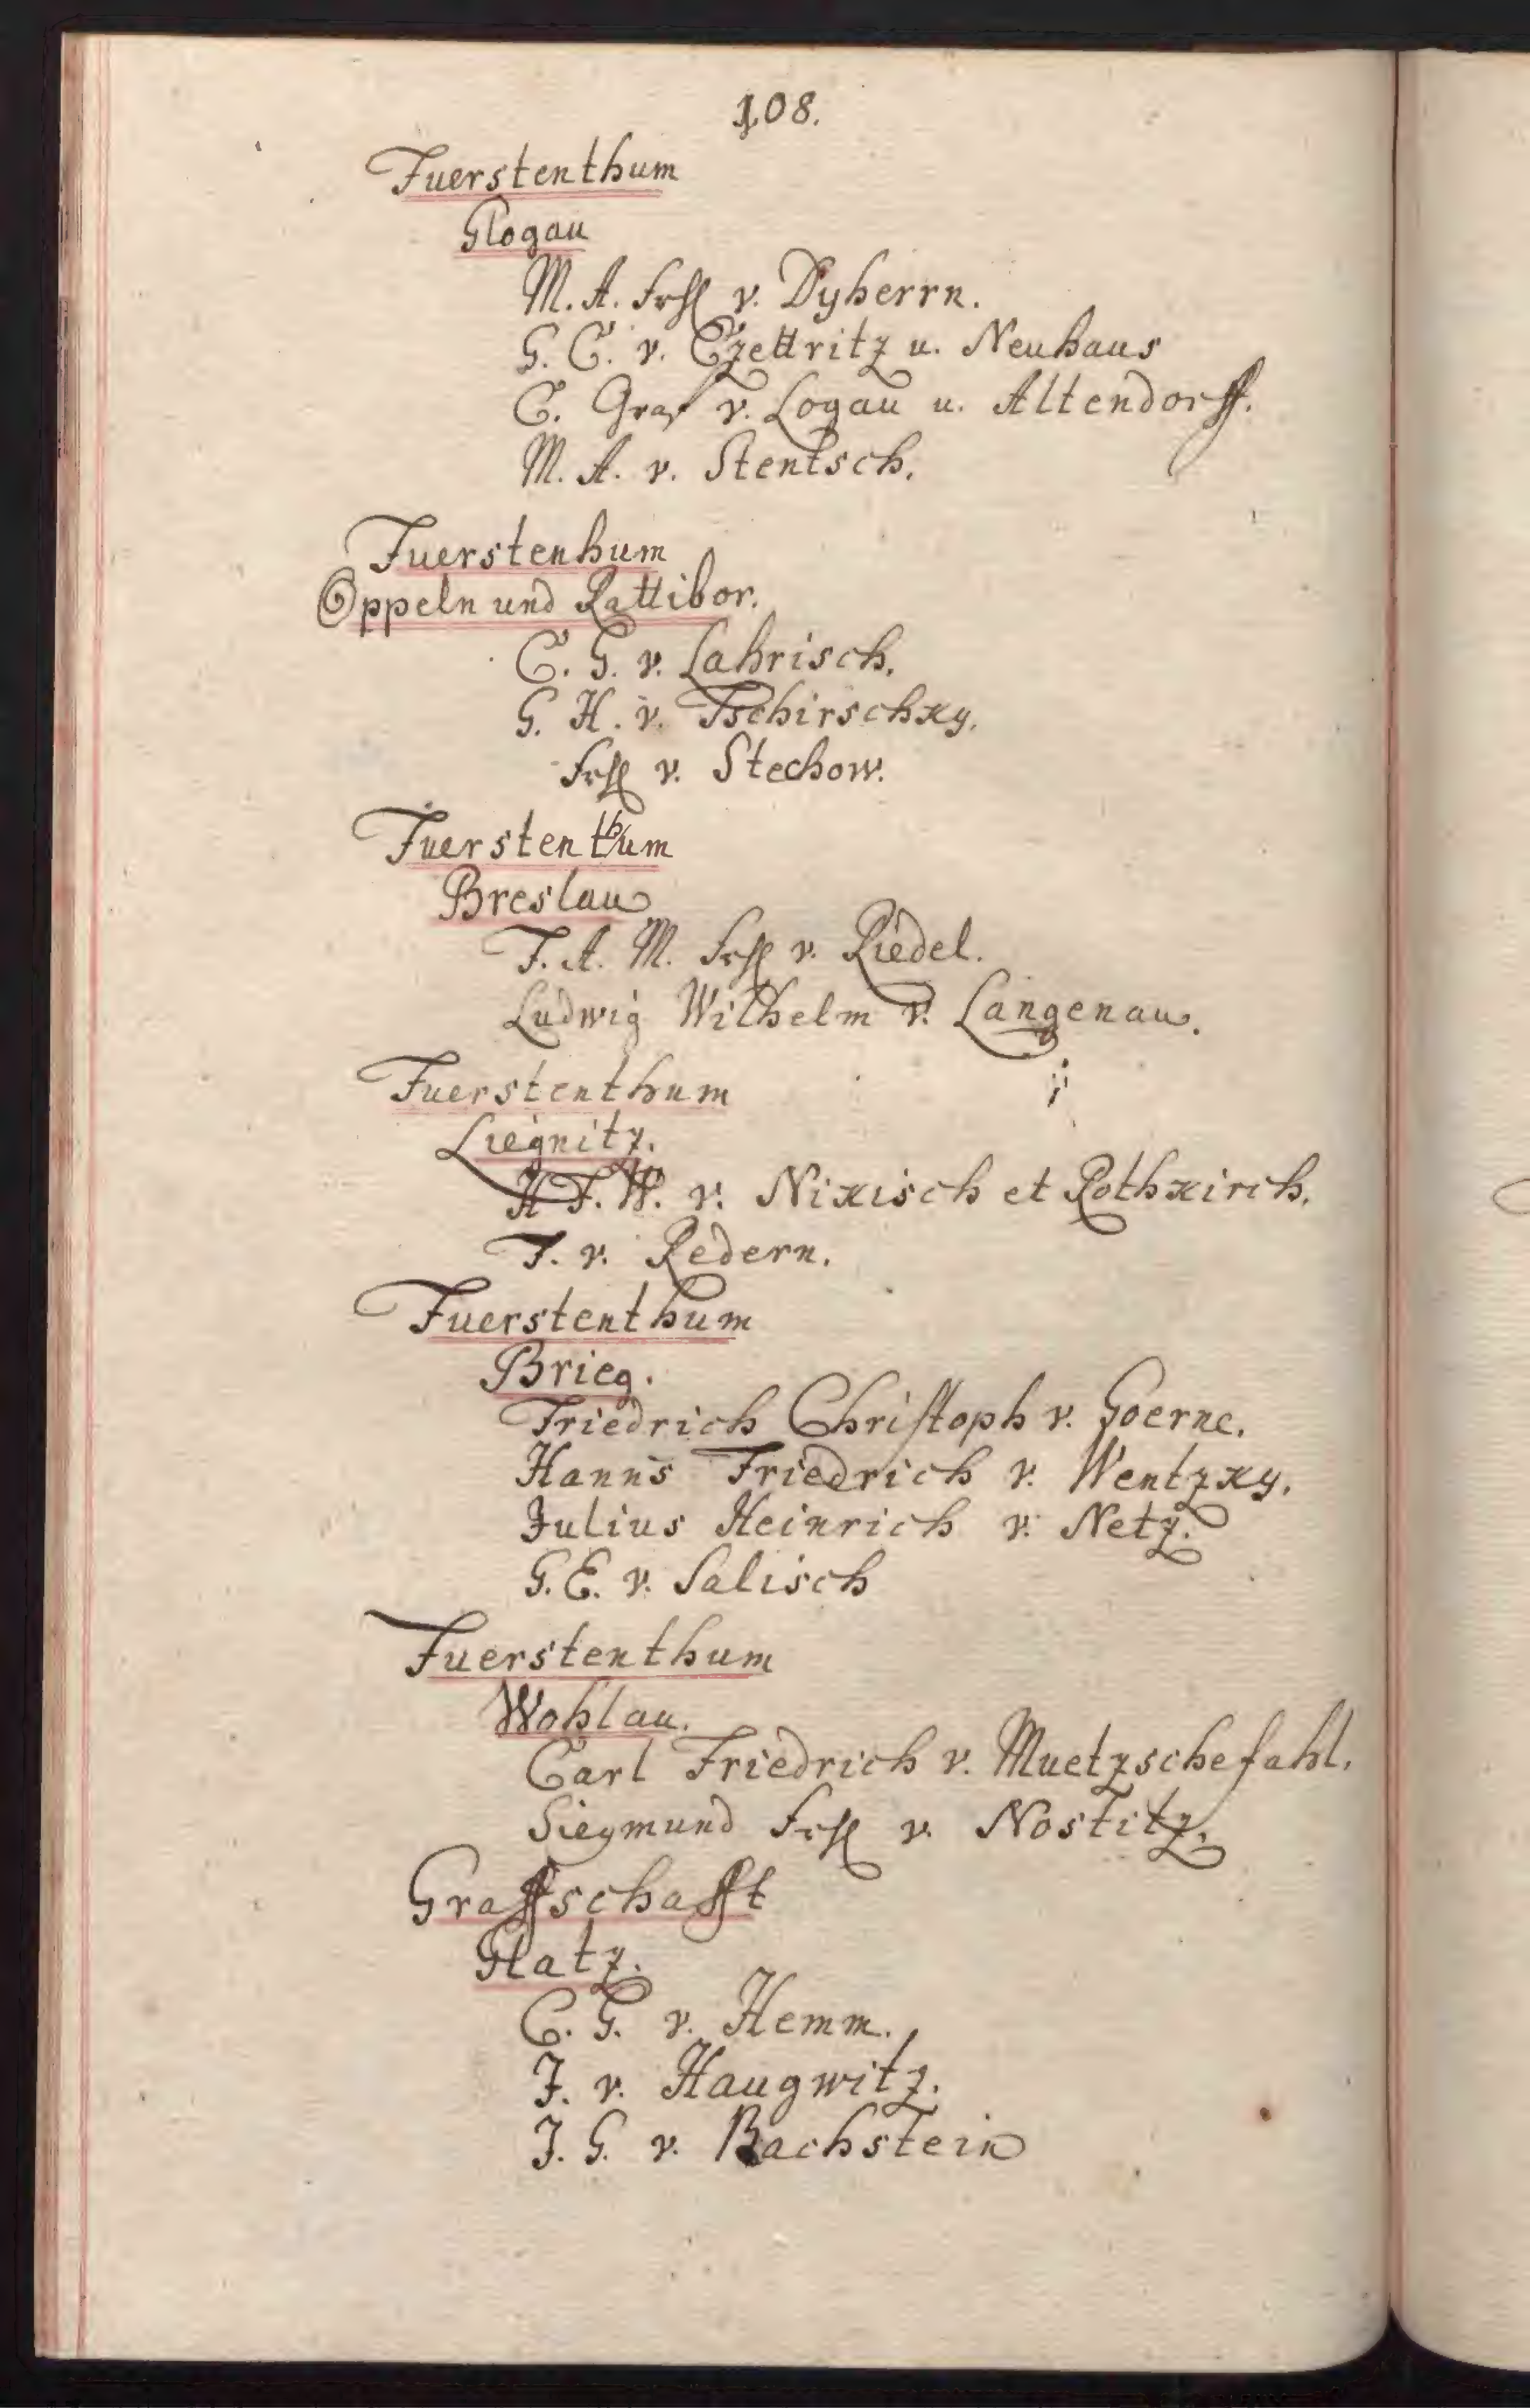 108.
Fuerstenthum
Glogau
M. A. Frhl v. Dyherrn.
G. C. v. Czettritz u. Neuhaus
C. Graf v. Logau u. Altendorff.
M. A. v. Stentsch.
Fuerstenhum
Oppeln und Rattibor.
C. G. v. Lahrisch.
G. H. v. Tschirschky.
Frhl v. Stechow.
Fuerstenthum
Breslau
F. A. M. Frhl v. Riedel.
Ludwig Wilhelm v. Langenau.
Fuerstenthum
Liegnitz.
H F. W. v. Nikisch et Rothkirch.
F. v. Redern.
Fuerstenthum
Brieg.
Friedrich Christoph v. Goerne.
Hanns Friedrich v. Wentzky.
Julius Heinrich v. Netz.
G. E. v. Salisch
Fuerstenthum
Wohlau.
Carl Friedrich v. Muetzschefahl.
Siegmund Frhl v. Nostitz.
Graffschafft
Glatz.
C. G. v. Hemm.
J. v. Haugwitz.
J. G. v. Bachstein